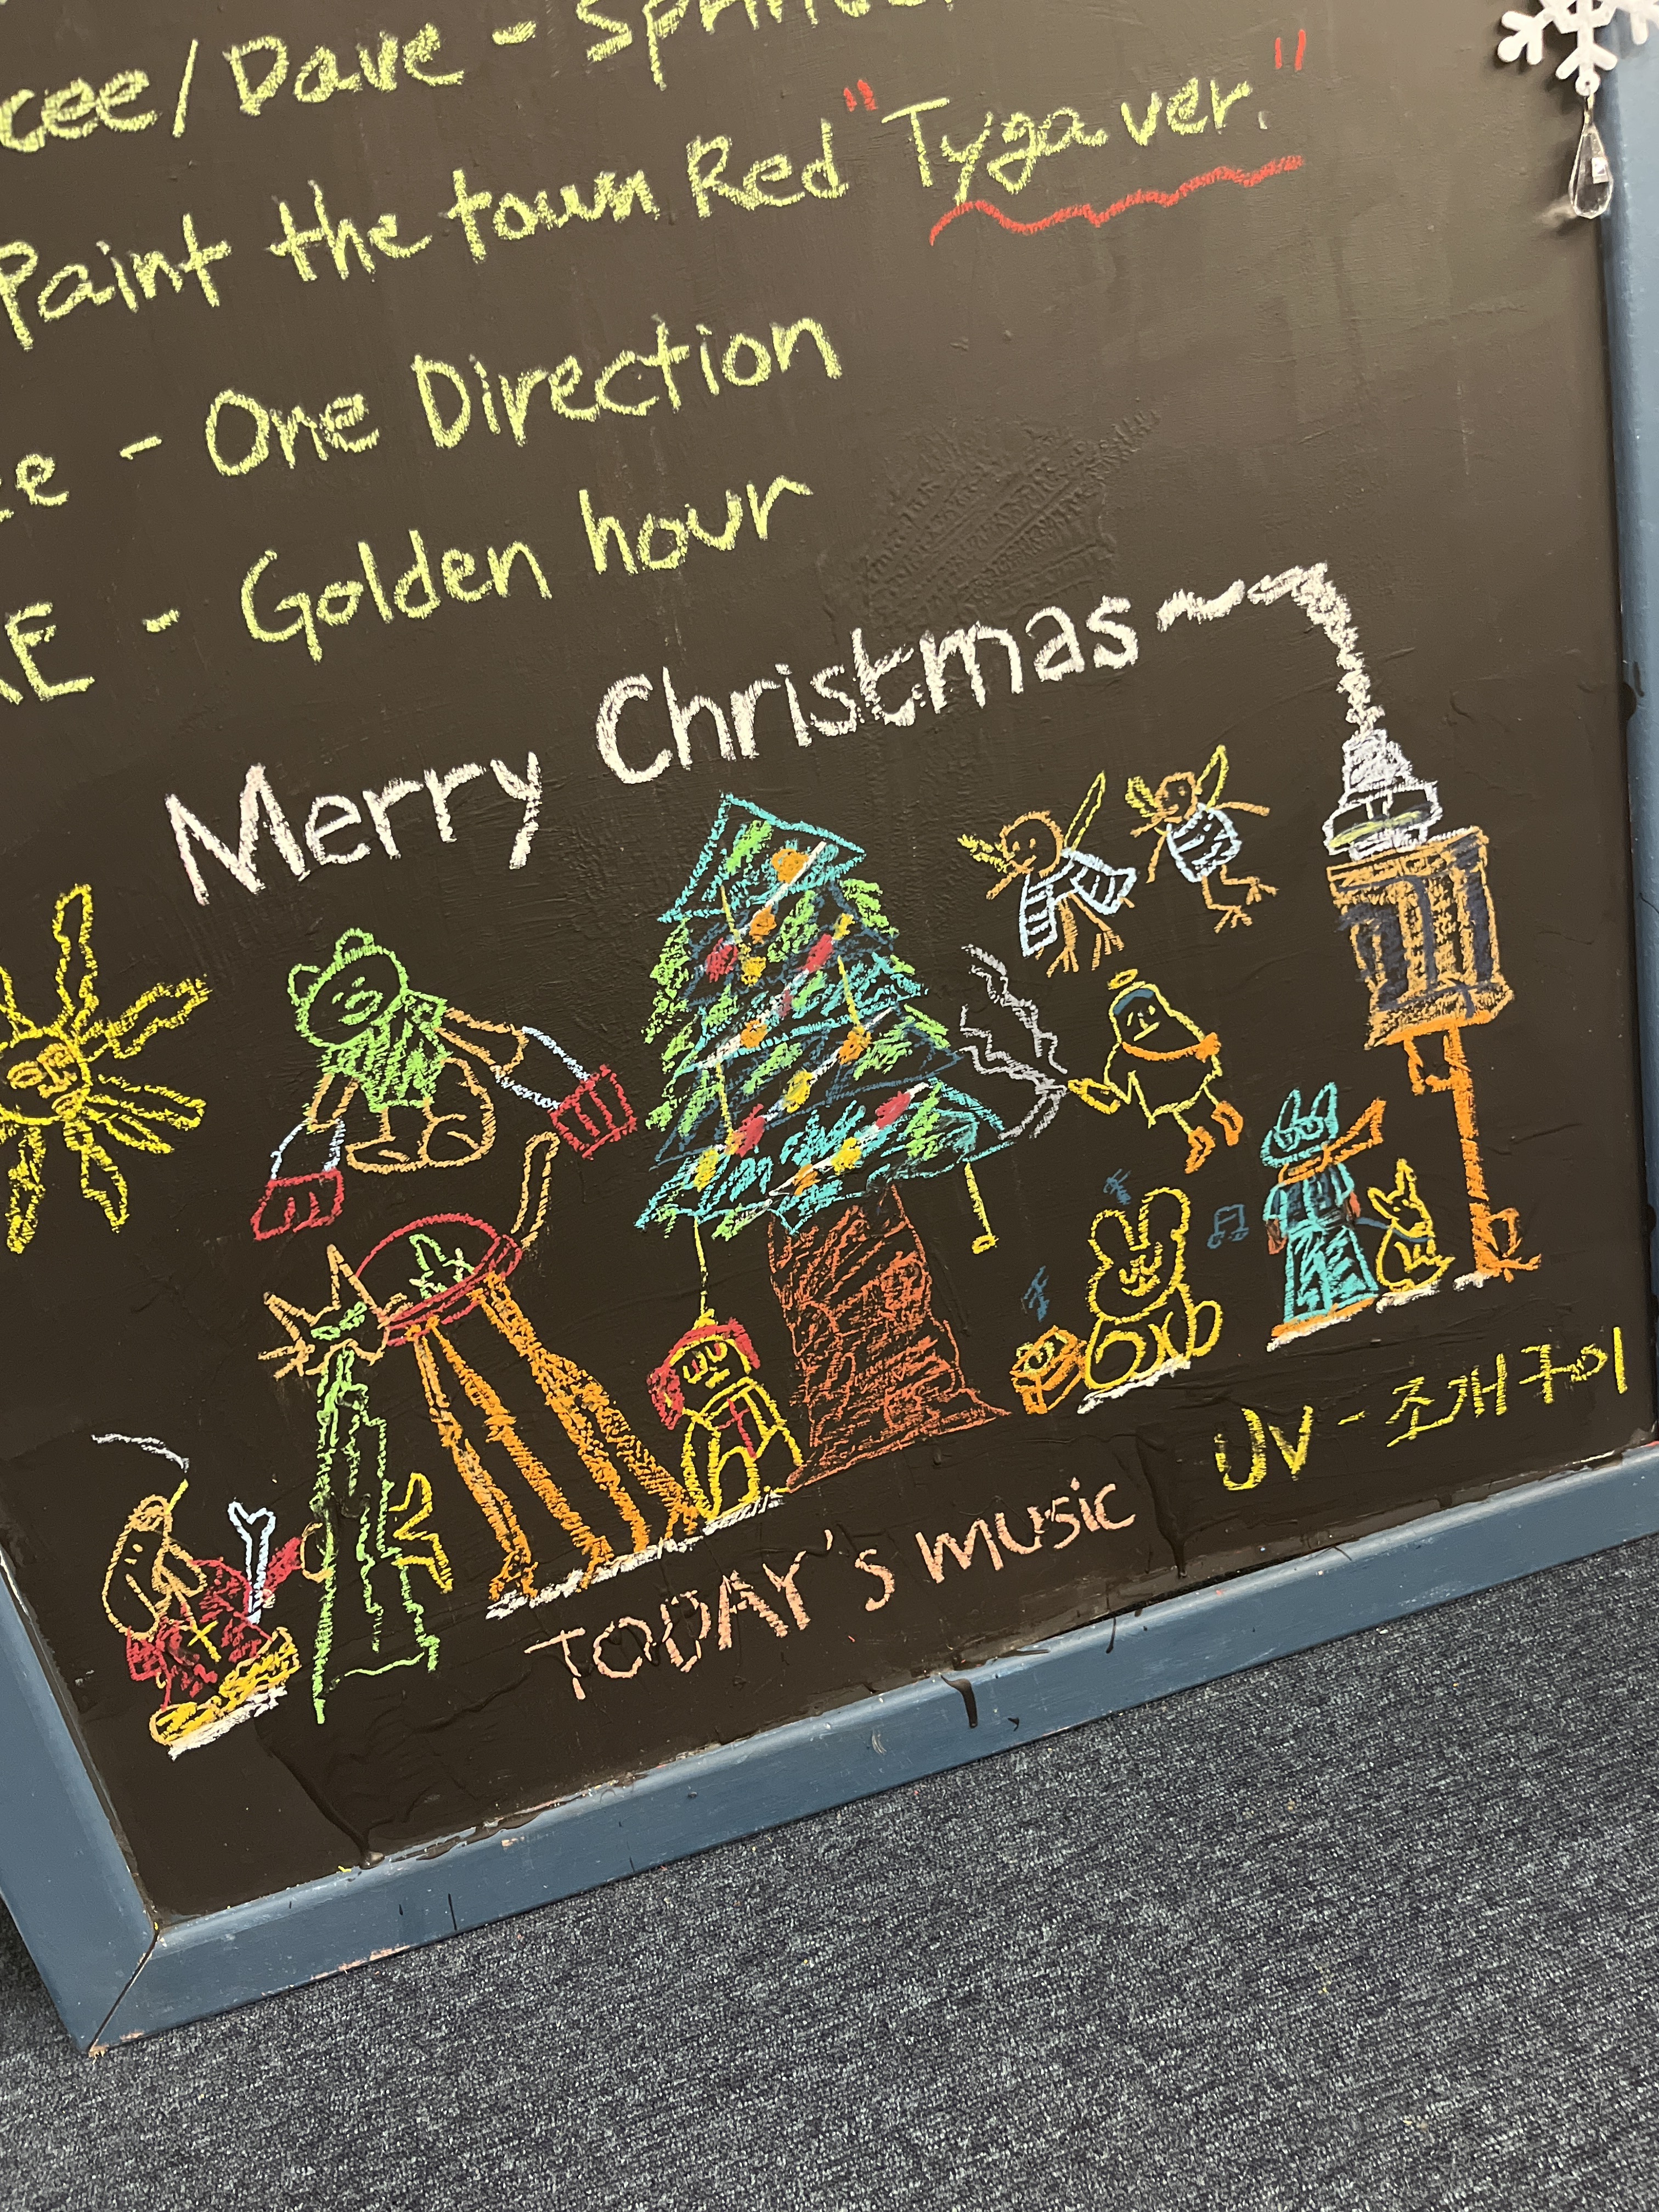 cee/Dave - Sprinter
Paint the town Red "Tyga ver."
- One Direction
- Golden hour
Merry Christmas
UV - 조개구이
TODAY'S MUSIC